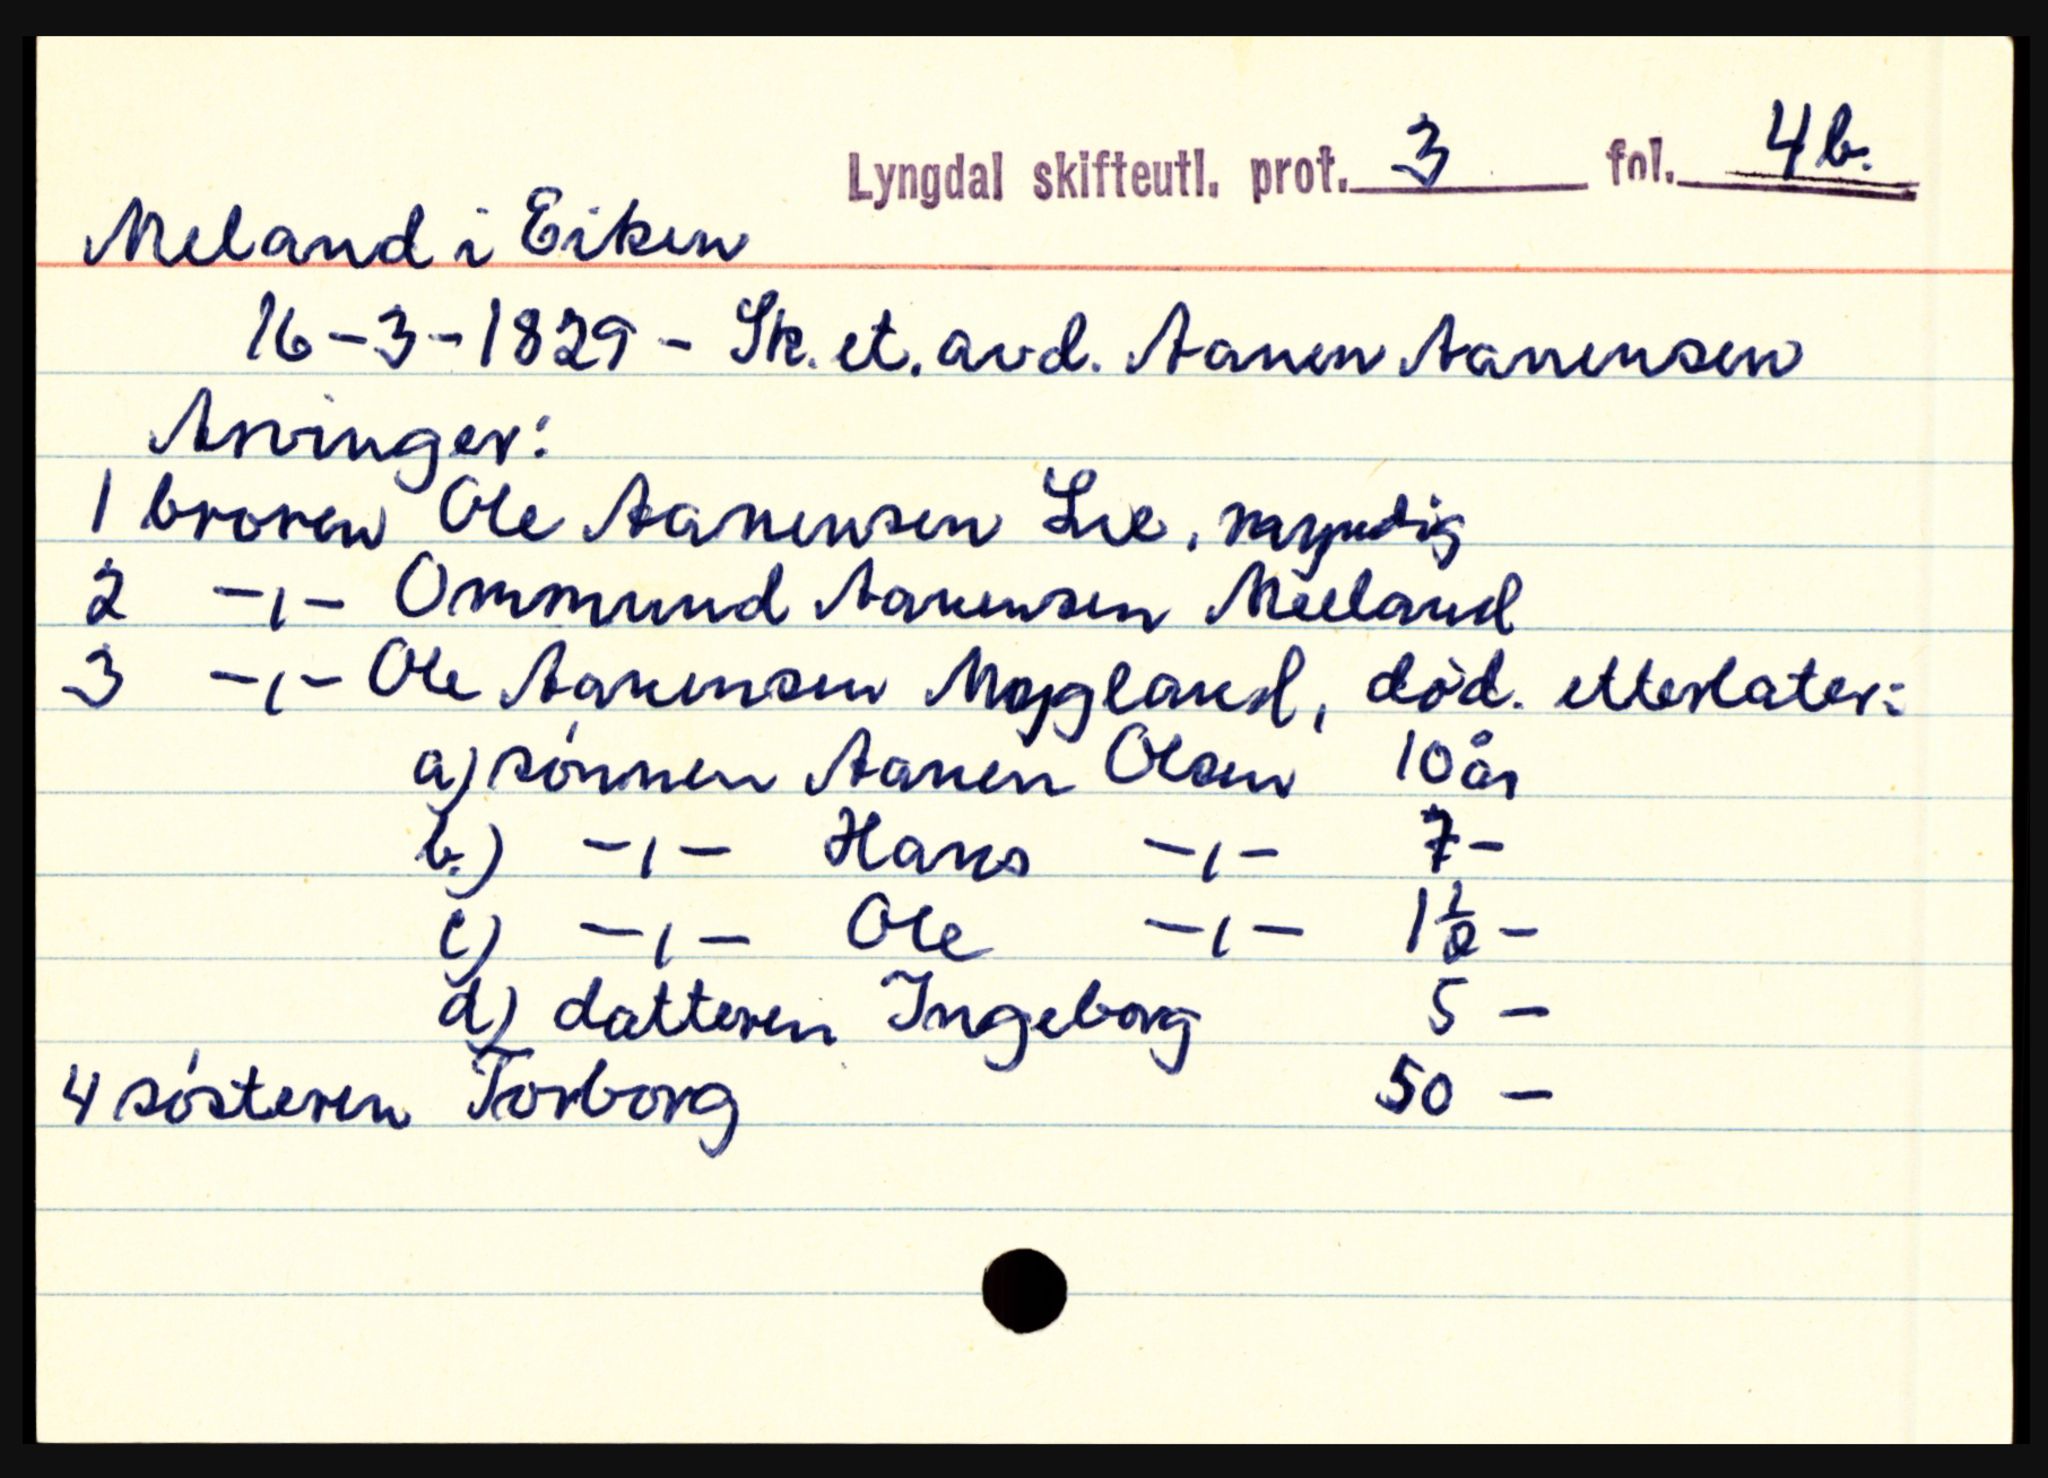 Lyngdal skifteutl. prot. 3 fol. 4b.
Meland i Eiken
16-3-1829 - Sk. et. avd. Aanen Aanensen
Arvinger:
1 broren Ole Aanensen Lie, myndig
2 -ı- Ommund Aanensen Meeland
3 -ı- Ole Aanensen Mygland, død. etterlater:
a) sønnen Aanen Olsen 10 år
b.) -ı- Hans -ı- 7 -
c) -ı- Ole -ı- 1½ -
d) datteren Ingeborg 5 -
4 søsteren Torborg 50 -